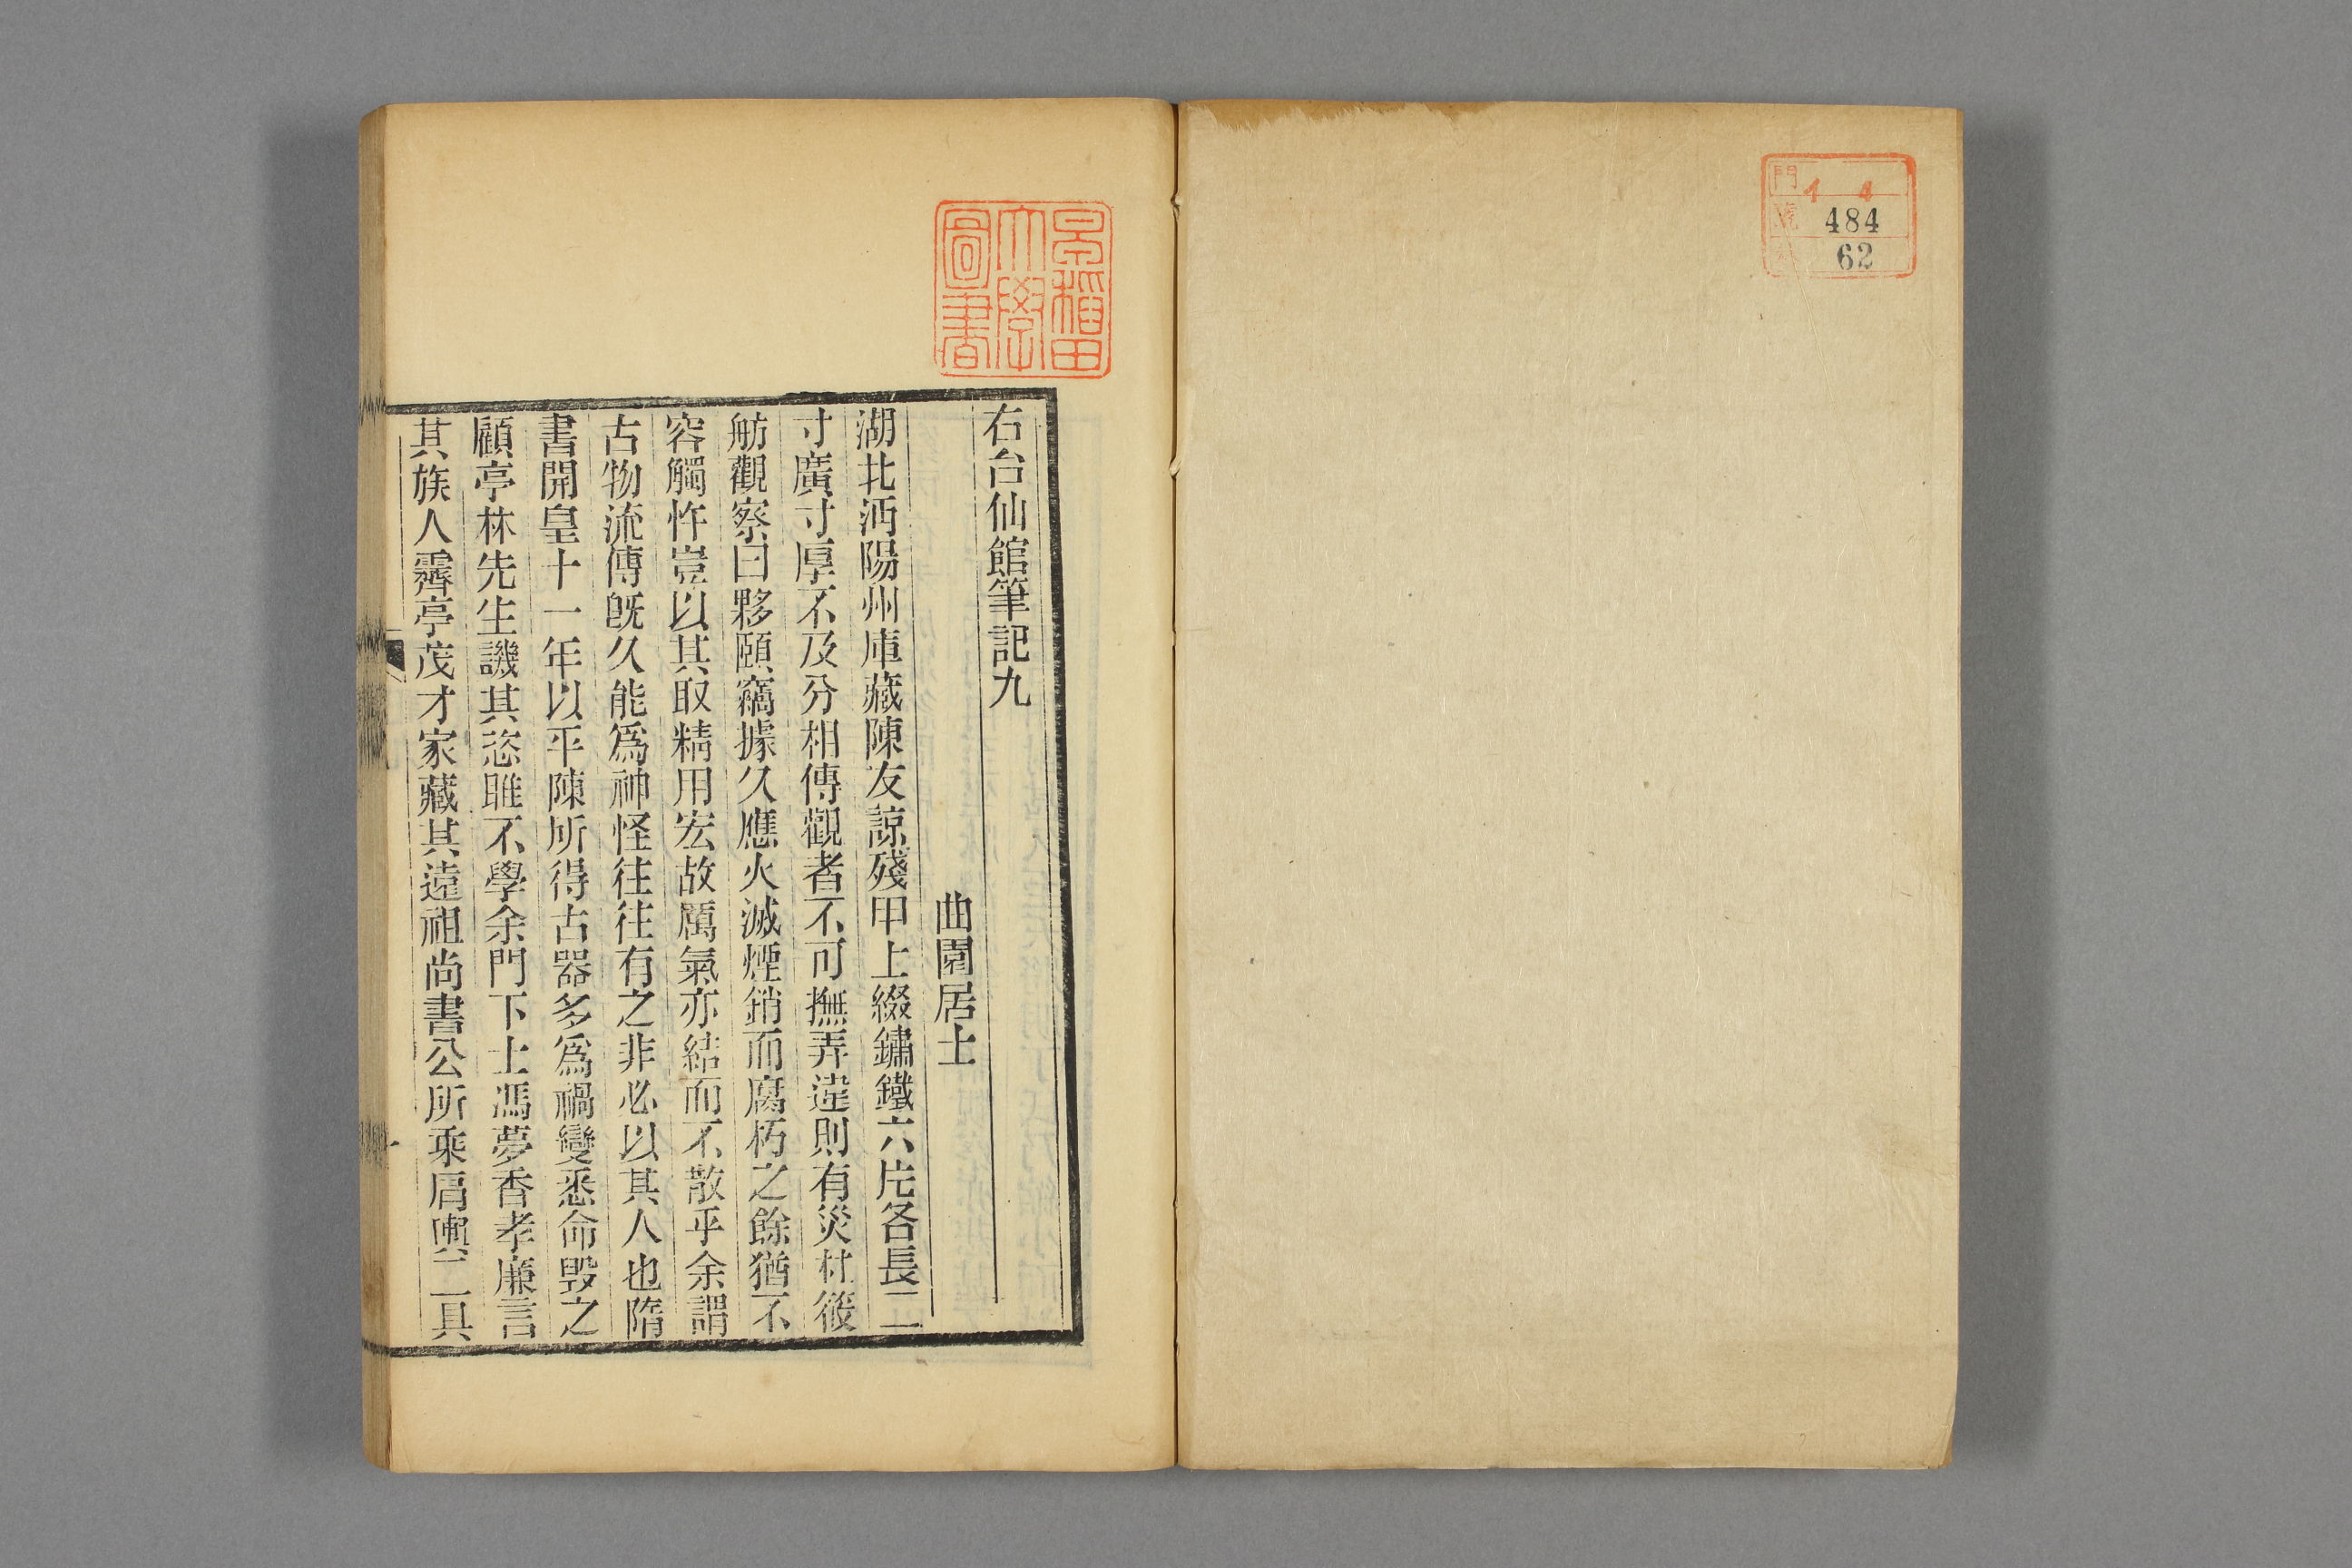 門 イ 4
號 484
62
早稲田
大學
圖書
右台仙館筆記九
曲園居士
湖北沔陽州庫藏陳友諒殘甲上綴鏽鐵六片各長二
寸廣寸厚不及分相傳觀者不可撫弄違則有災杜筱
舫觀察曰夥頤竊據久應火滅煙銷而腐朽之餘猶不
容觸忤豈以其取精用宏故厲氣亦結而不散乎余謂
古物流傳旣久能爲神怪往往有之非必以其人也隋
書開皇十一年以平陳所得古器多爲禍變悉命毀之
顧亭林先生譏其恣睢不學余門下士馮夢香孝廉言
其族人霽亭茂才家藏其遠祖尚書公所乘肩輿二具